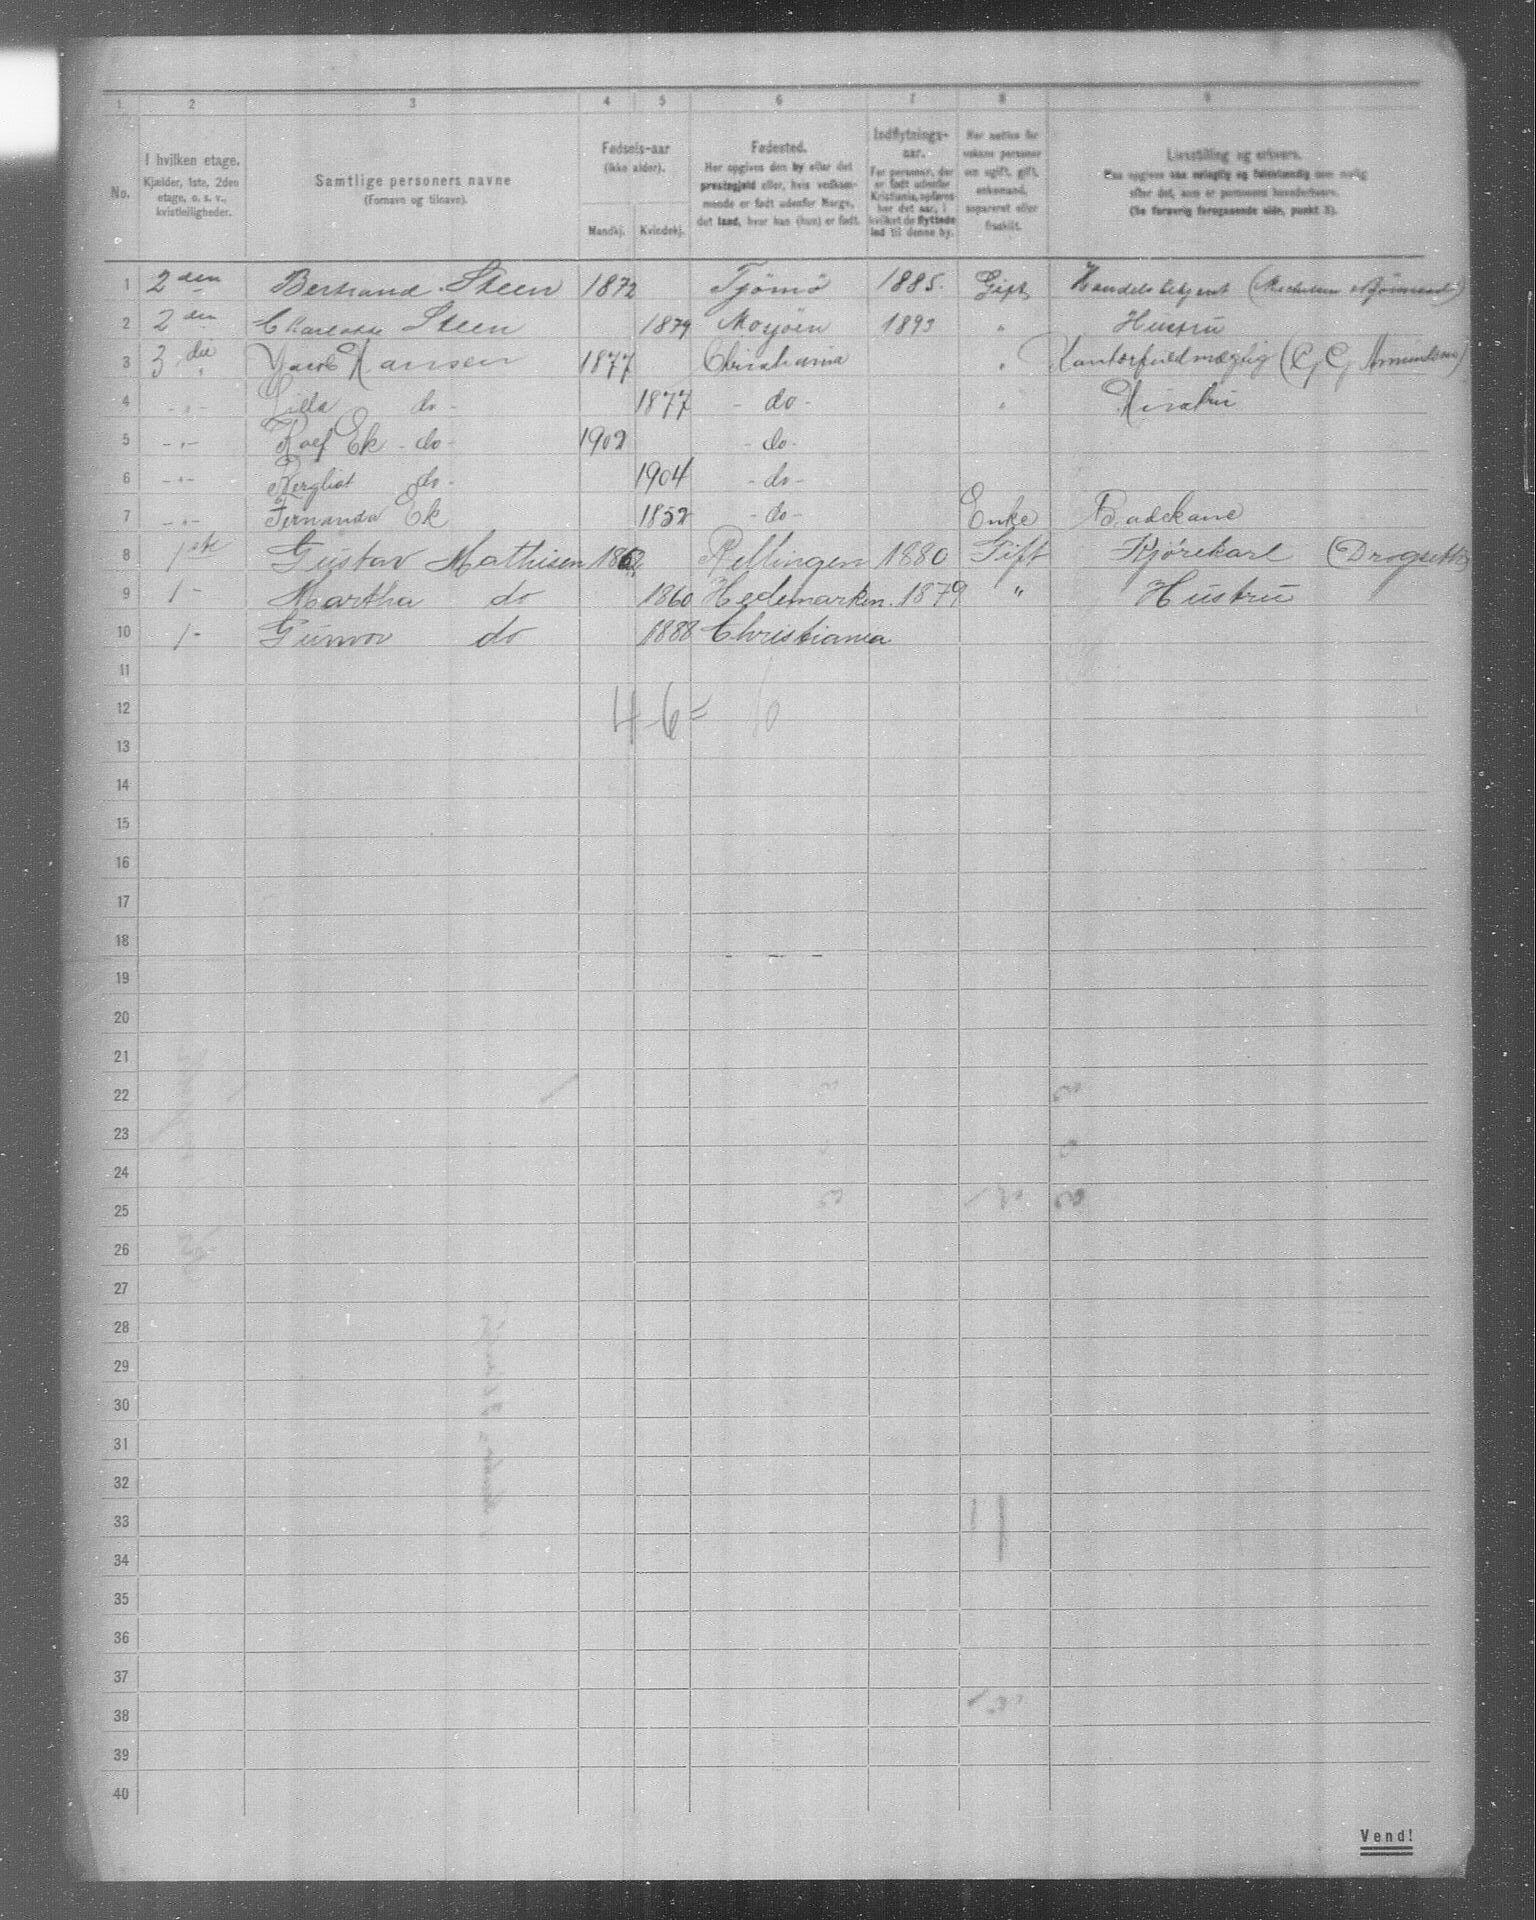 1 2 3 4 5 6 7 8 9
No.
I hvilken etage.
Kjælder, 1ste, 2den
etage, o. s. v.,
kvistleiligheder.
Samtlige personers navne
(Fornavn og tilnavn).
Fødsels-aar
(ikke alder).
Mandkj. Kvindekj.
Fødested.
Her opgives den by eller det
præstegjeld eller, hvis vedkom-
mende er født udenfor Norge,
det land, hvor han (hun) er født.
Indflytnings-
aar.
For personer, der
er født udenfor
Kristiania, opføres
her det aar, i
hvilket de flyttede
ind til denne by.
Her anføres for
voksne personer
om ugift, gift,
enkemand,
separeret eller
fraskilt.
Livsstilling og erhverv.
(Se forøvrig foregaaende side, punkt 3).
1 2den Bertrand Steen 1872 Tjømø 1885. Gift Handelsbetjent
2 2den Charlotte Steen 1879 Mosjøen 1893 " Hustru
3 3die Jacob Hansen 1877 Christiania " Kontorfuldmægtig
4 -"- do- 1877 - do- " Hustru
5 -"- Ek - do- 1902 - do-
6 -"- do- 1904 - do-
7 -"- Fernanda Ek 1852 - do- Enke Badekone
8 1ste Gustav Mathisen Rellingen 1880 Gift Kjørekarl
9 1 - Martha do 1860 Hedemarken. 1879 " Hustru
10 1 - Gunvor do 1888 Christiania
11
12 4 6 =
13
14
15
16
17
18
19
20
21
22
23
24
25
26
27
28
29
30
31
32
33
34
35
36
37
38
39
40
Vend!